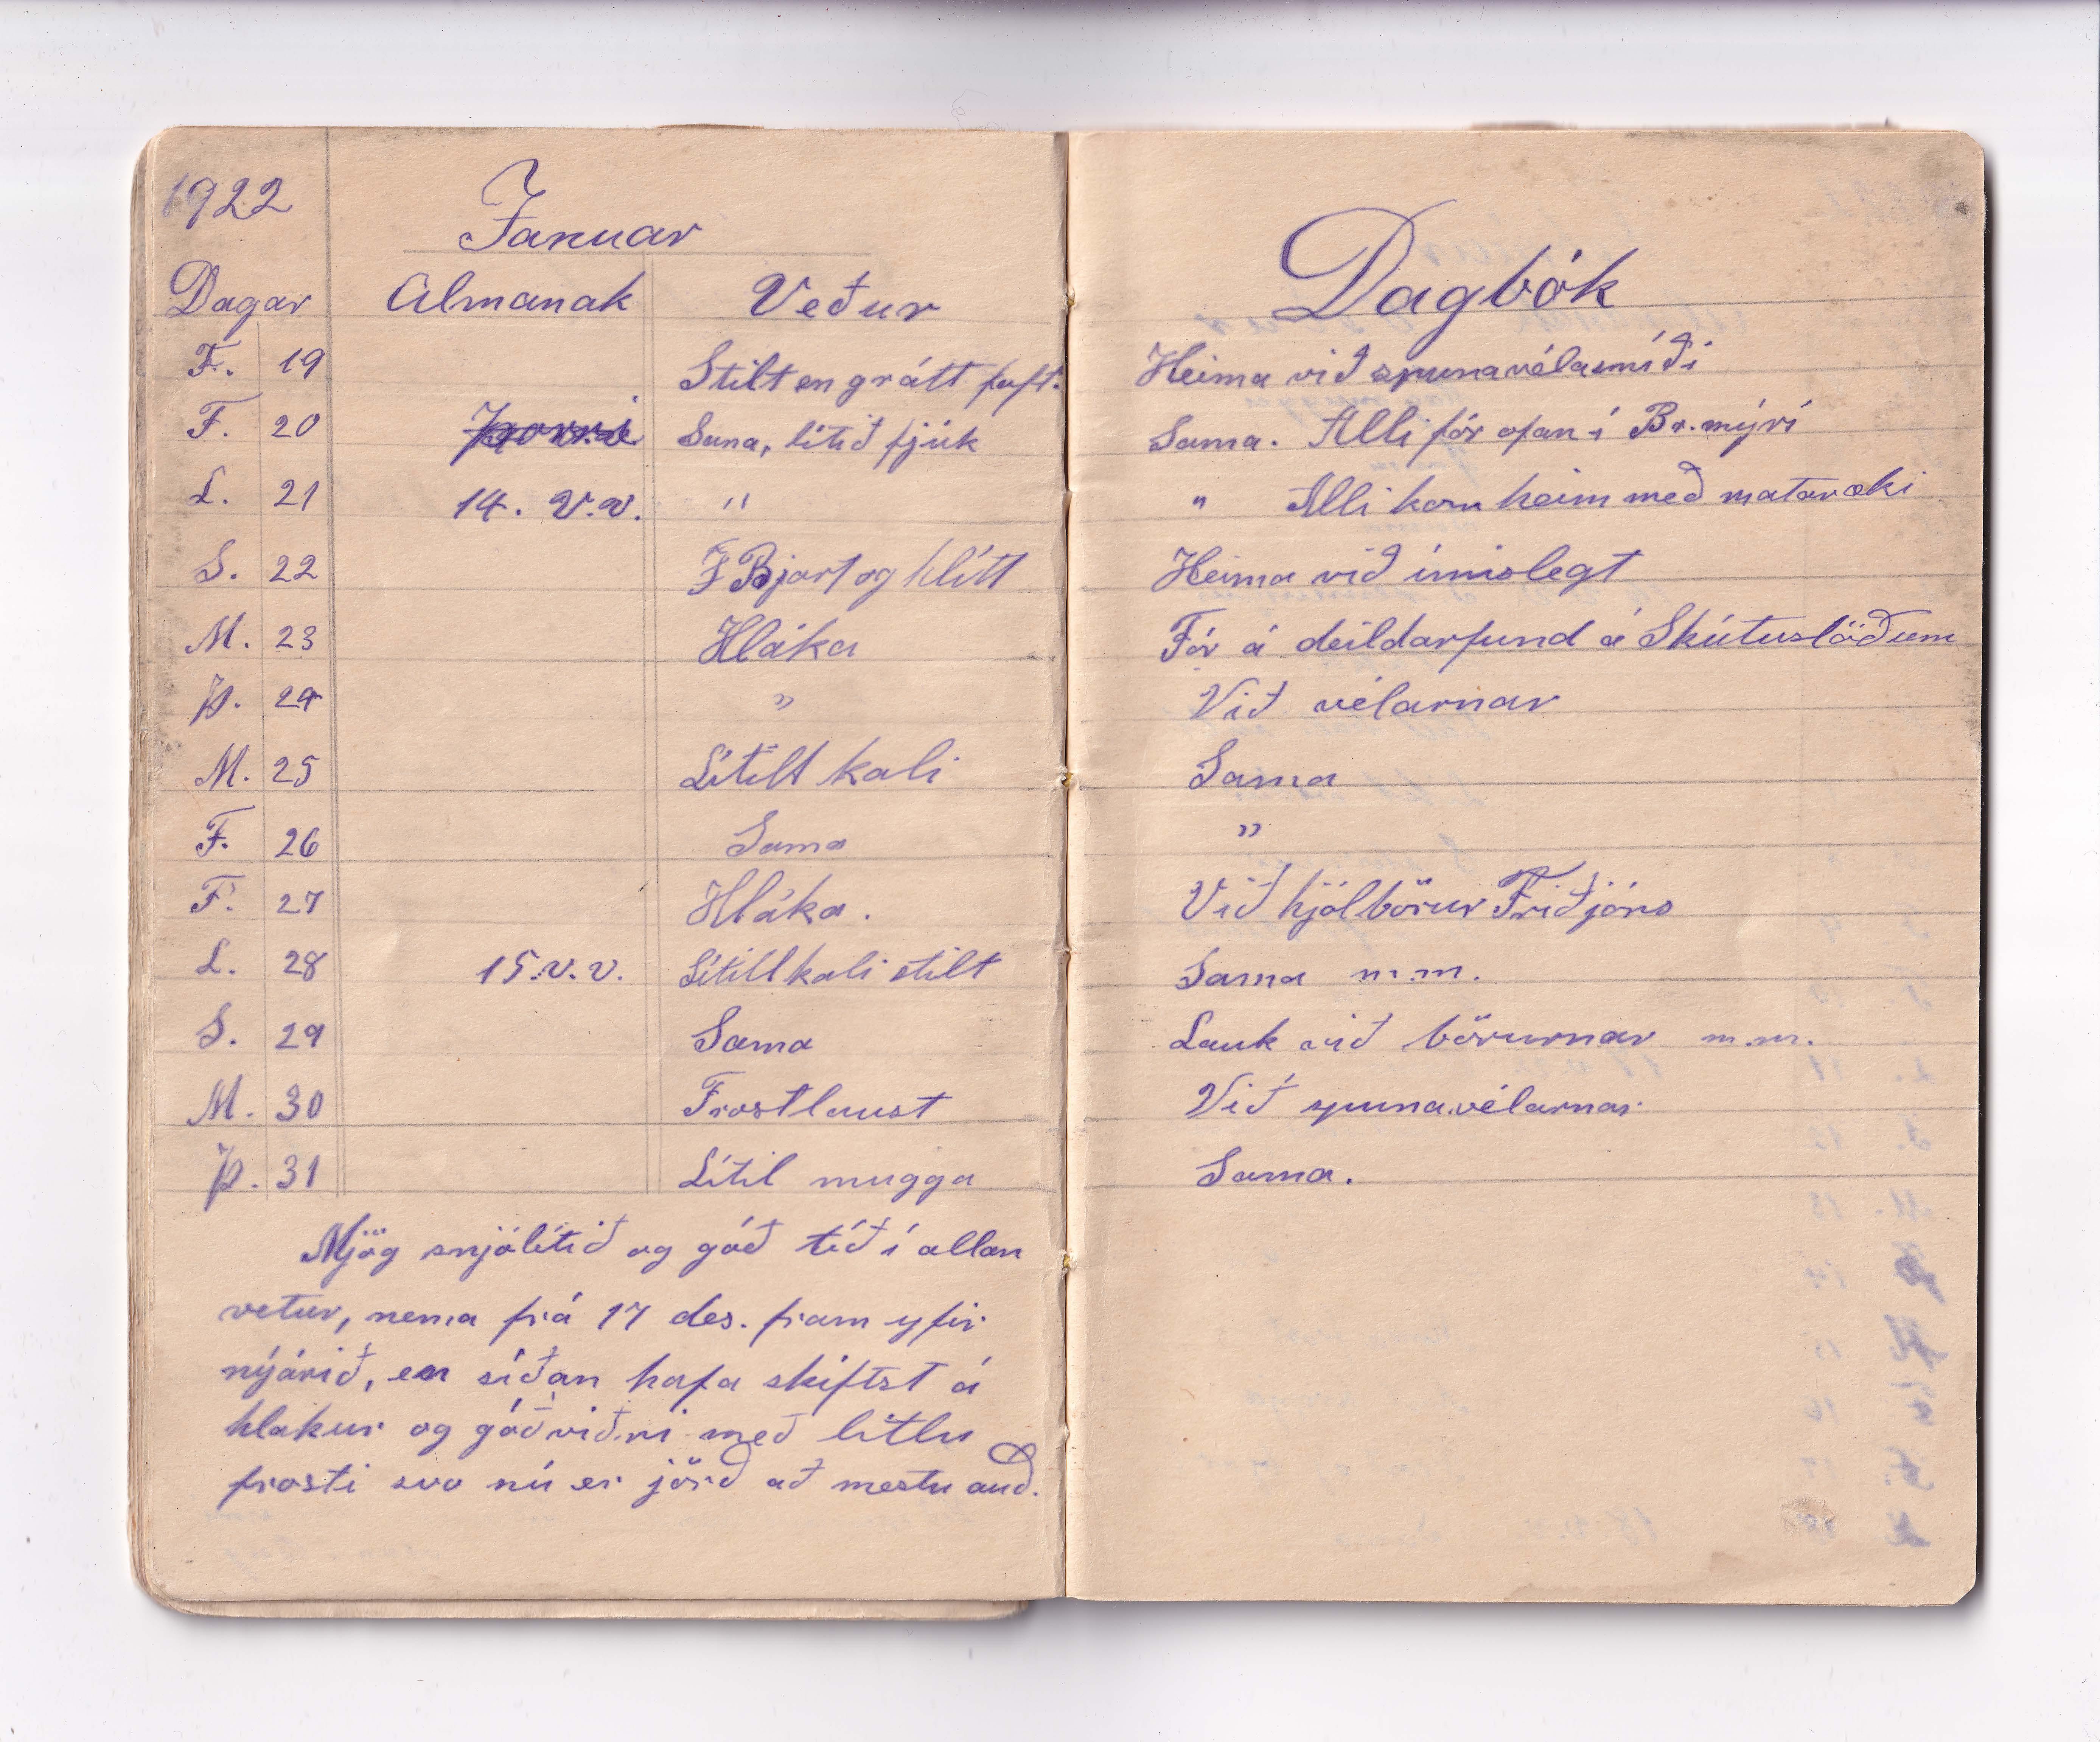 1922
Januar
Dagar Almanak Veður
F. 19 Stilt en grátt loft.
F. 20 Þorri Sama, lítið fjúk
L. 21 14. V.v. "
S. 22 Bjart og hlítt
M. 23 Hláka
Þ. 24 "
M. 25 Lítilt kali
F. 26 Sama
F. 27 Hláka.
L. 28 15.v.v. Lítill kali stilt
S. 29 Sama
M. 30 Frostlaust
Þ. 31 Lítil mugga
Mjög snjólítið og góð tíð í allan
vetur, nema frá 17 des. fram yfir
nýárið, en síðan hafa skiftst á
hlákur og góðviðri með litlu
frosti svo nú er jörð að mestu auð.
Dagbók
Heima við spunavélasmíði
Sama. Alli fór ofan í Br.mýri
" Alli kom heim með mataræki
Heima við ímislegt
Fór á deildarfund á Skútustöðum
Við vélarnar
Sama
"
Við hjólbörur Friðjóns
Sama m.m.
Lauk við börurnar m.m.
Við spunavélarnar
Sama.